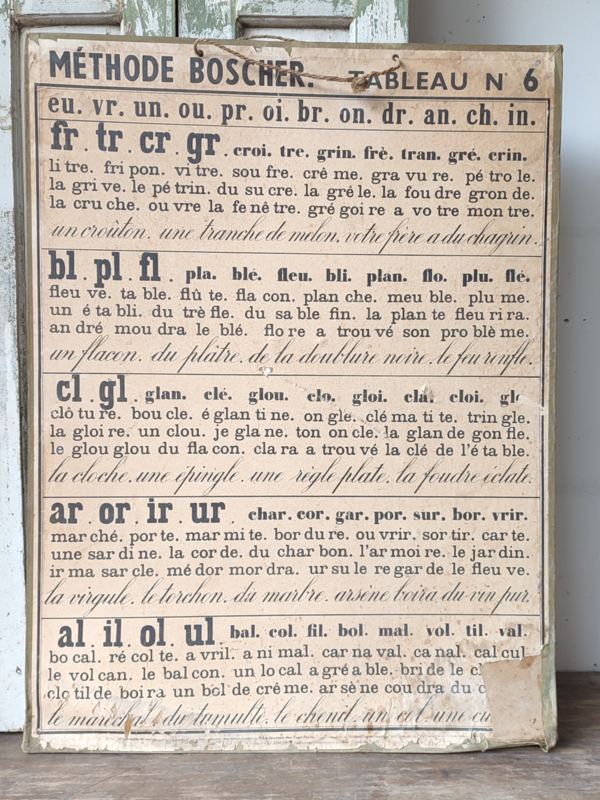 MÉTHODE BOSCHER. TABLEAU N° 6
eu. vr. un. ou. pr. oi. br. on. dr. an. ch. in.
fr. tr. cr. gr. croi. tre. grin. frè. tran. gré. crin.
li tre. fri pon. vi tre. sou fre. crê me. gra vu re. pé tro le.
la gri ve. le pé trin. du su cre. la grê le. la fou dre gron de.
la cru che. ou vre la fe nê tre. gré goi re a vo tre mon tre.
un croûton. une tranche de melon. votre frère a du chagrin.
bl. pl. fl. pla. blé. fleu. bli. plan. flo. plu. flé.
fleu ve. ta ble. flû te. fla con. plan che. meu ble. plu me.
un é ta bli. du trè fle. du sa ble fin. la plan te fleu ri ra.
an dré mou dra le blé. flo re a trou vé son pro blè me.
un flacon. du plâtre. de la doublure noire. le feu ronfle.
cl. gl. glan. clé. glou. clo. gloi. cla. cloi.
clô tu re. bou cle. é glan ti ne. on gle. clé ma ti te. trin gle.
la gloi re. un clou. je gla ne. ton on cle. la glan de gon fle.
le glou glou du fla con. cla ra a trou vé la clé de l'é ta ble.
la cloche. une épingle. une règle plate. la foudre éclate.
ar. or. ir. ur. char. cor. gar. por. sur. bor. vrir.
mar ché. por te. mar mi te. bor du re. ou vrir. sor tir. car te.
une sar di ne. la cor de. du char bon. l'ar moi re. le jar din.
ir ma sar cle. mé dor mor dra. ur su le re gar de le fleu ve.
la virgule. le torchon. du marbre. arsène boira du vin pur.
al. il. ol. ul. bal. col. fil. bol. mal. vol. til. val.
bo cal. ré col te. a vril. a ni mal. car na val. ca nal. cal cul
le vol can. le bal con. un lo cal a gré a ble. bri de le
clo til de boi ra un bol de crê me. ar sè ne cou dra du
le maréchal. du tumulte. le chenal. un col. une